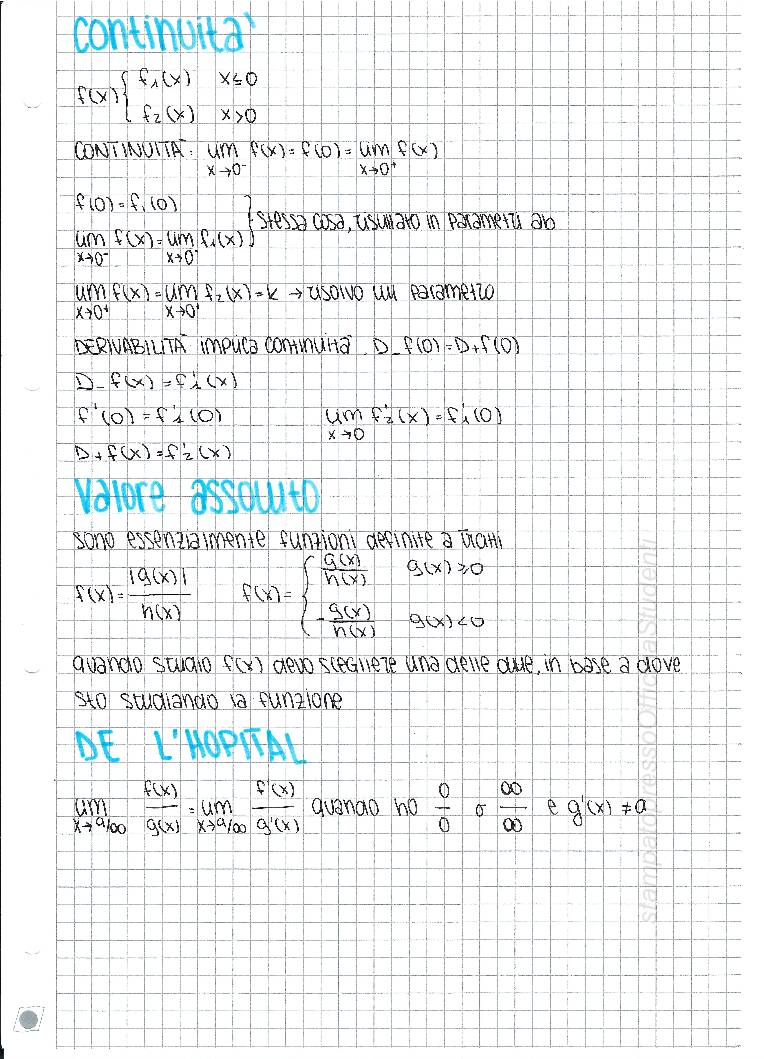 continuità
f(x) { f₁(x) x≤0
f₂(x) x>0
CONTINUITÀ: lim x→0⁻ f(x) = f(0) = lim x→0⁺ f(x)
f(0) = f₁(0)
lim x→0⁻ f(x) = lim x→0⁻ f₁(x) } stessa cosa, risultato in parametri ab
lim x→0⁺ f(x) = lim x→0⁺ f₂(x) = k → risolvo un parametro
DERIVABILITÀ implica continuità D₋f(0) = D₊f(0)
D₋ f(x) = f'₁(x)
f'(0) = f'₁(0) lim x→0 f'₂(x) = f'₁(0)
D₊ f(x) = f'₂(x)
valore assoluto
sono essenzialmente funzioni definite a tratti
f(x) = |g(x)| / h(x) f(x) = { g(x)/h(x) g(x) ≥ 0
-g(x)/h(x) g(x) < 0
quando studio f(x) devo scegliere una delle due, in base a dove
sto studiando la funzione
DE L'HOPITAL
lim x→a/∞ f(x)/g(x) = lim x→a/∞ f'(x)/g'(x) quando ho 0/0 o ∞/∞ e g'(x) ≠ a
stampatopressoOfficineStudenti